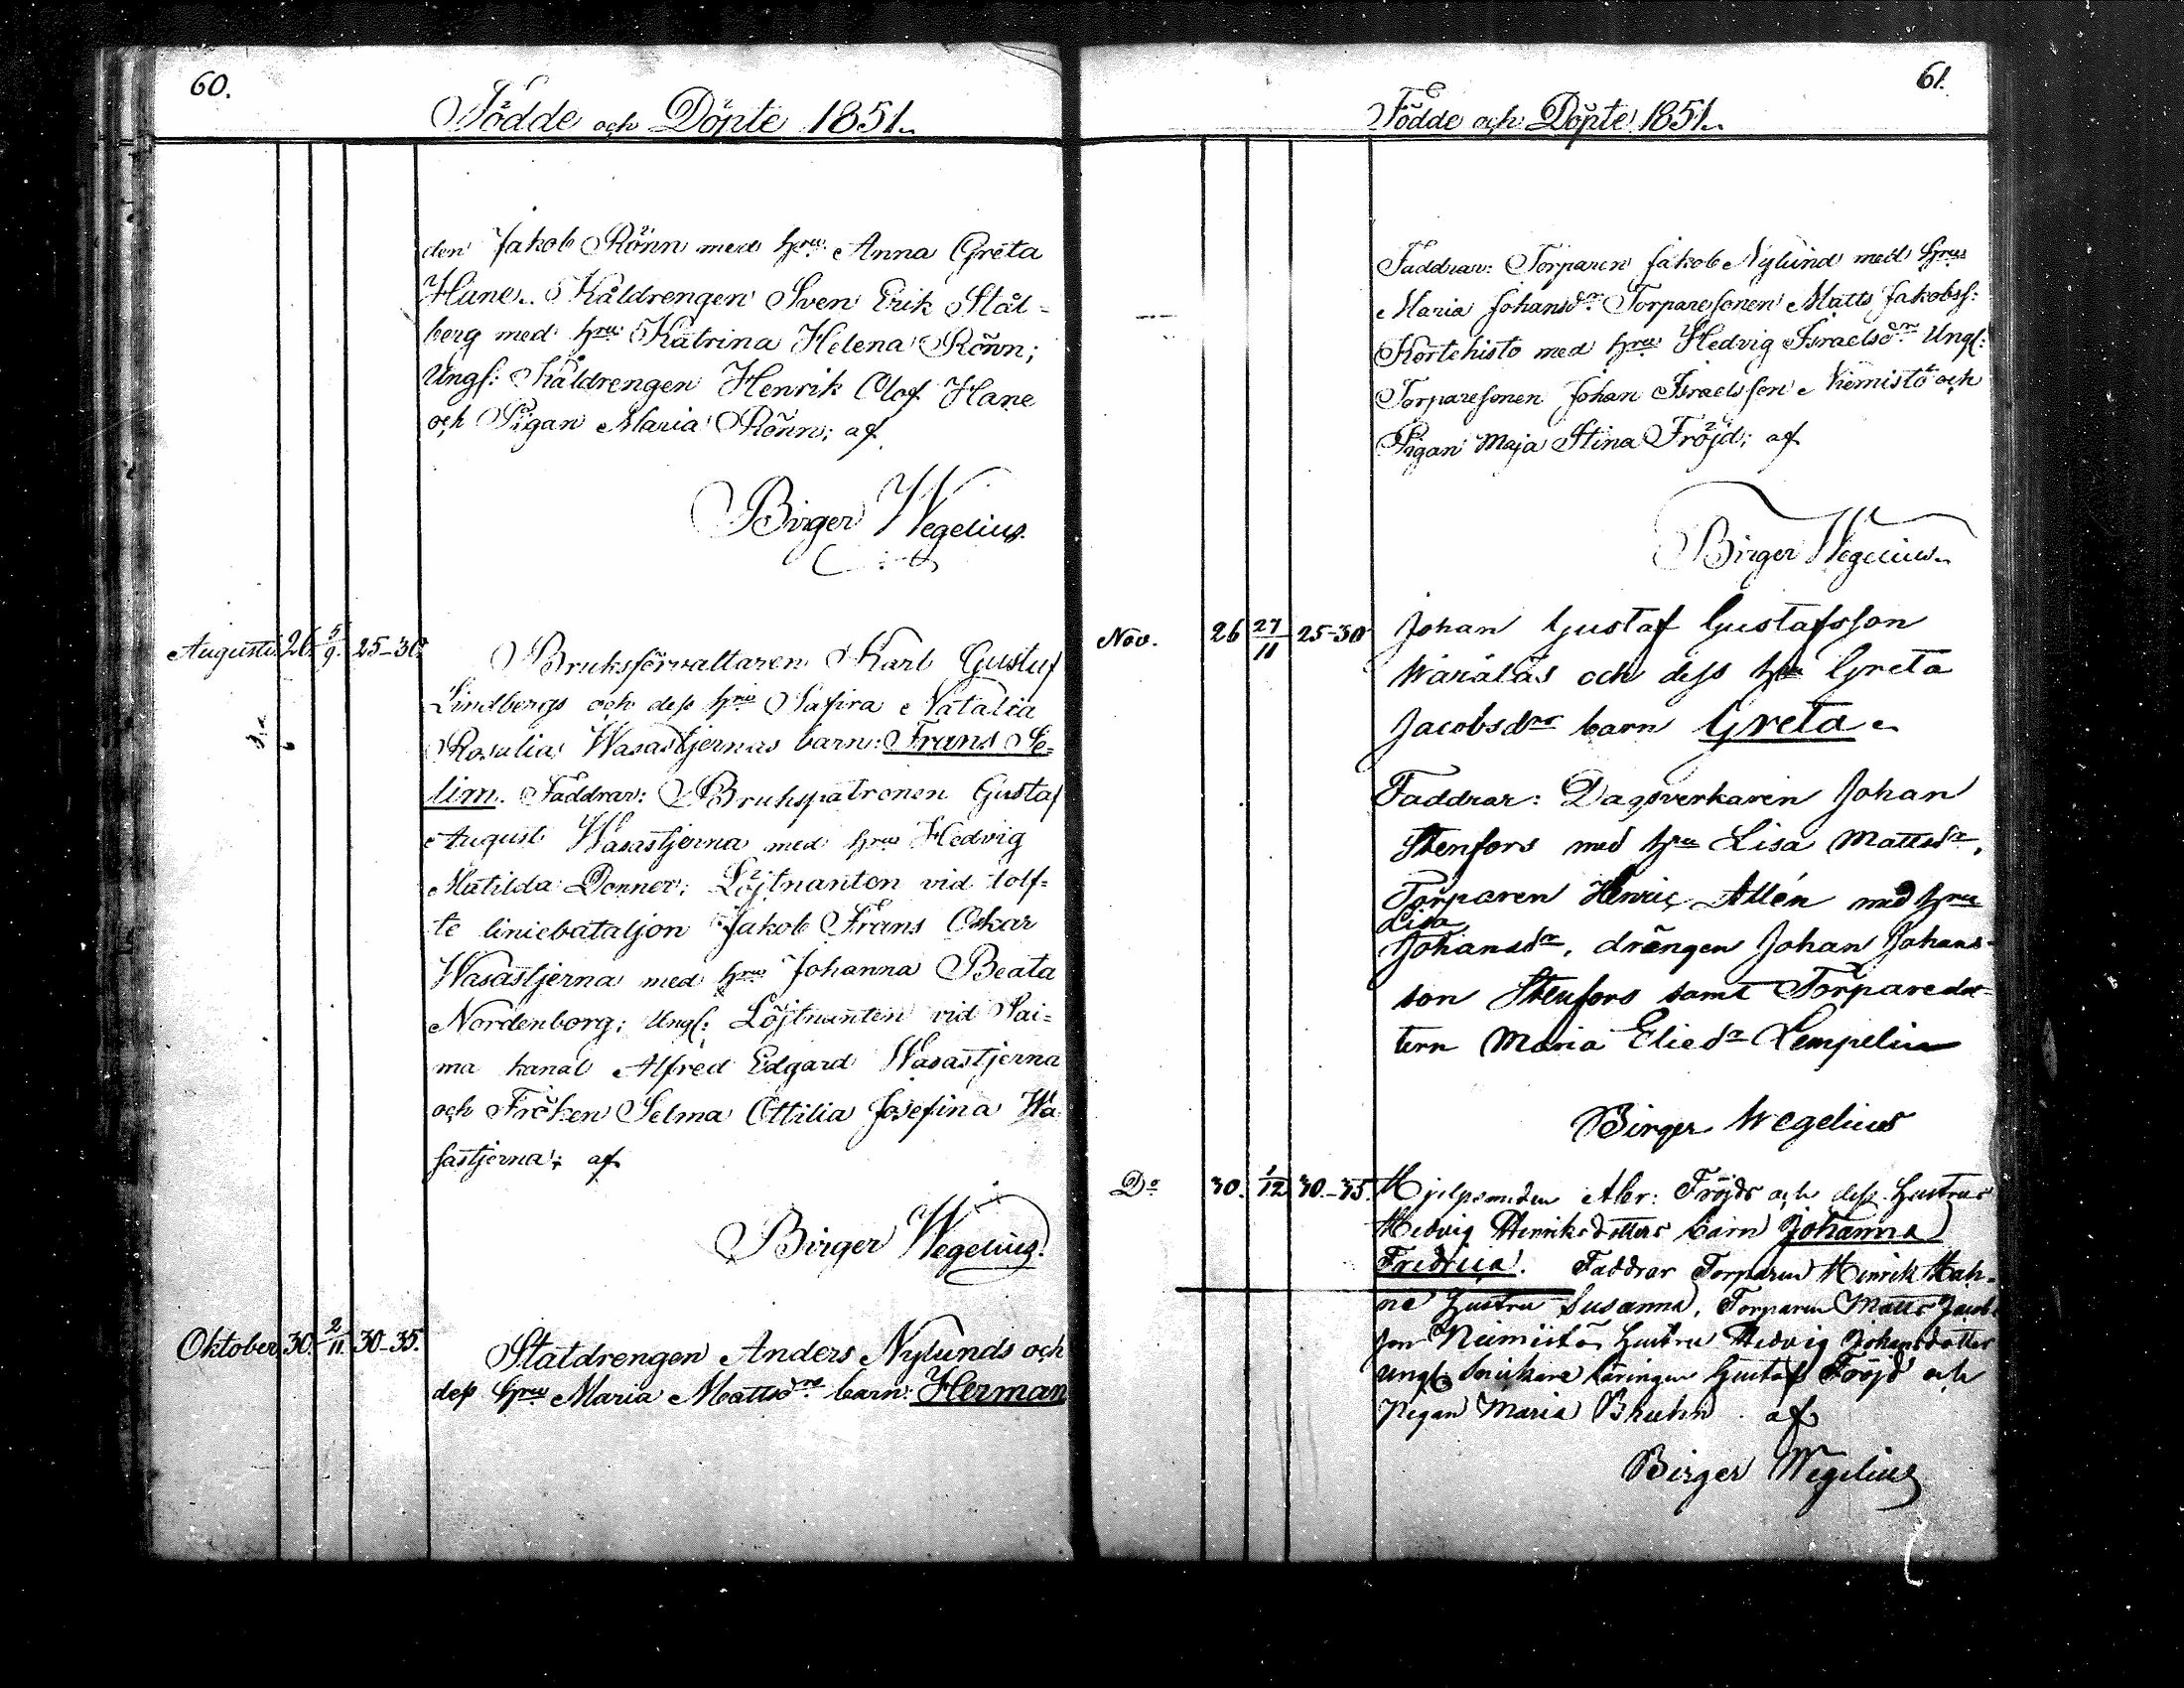 60.
Födde och Döpte 1851.
den Jakob Rönn med hru Anna Greta
Hane. Kåldrengen Sven Erik Stål-
berg med hru Katrina Helena Rönn;
Ungf: Kåldrengen Henrik Olof Hane
och Pigan Maria Rönn; af
Birger Wegelius.
Augusti 26. 5/9. 25-30. Bruksförvaltaren Karl Gustaf
Lindbergs och dess hrus Safira Natalia
Rosalia Wasastjernas barn: Frans Se-
lim. Faddrar: Brukspatronen Gustaf
August Wasastjerna med hru Hedvig
Matilda Donner; Löjtnanten vid tolf-
te liniebataljon Jakob Frans Oskar
Wasastjerna med hru Johanna Beata
Nordenborg; Ungf: Löjtnanten vid Sai-
ma kanal Alfred Edgard Wasastjerna
och Fröken Selma Ottilia Josefina Wa
sastjerna; af
Birger Wegelius.
Oktober 30. 2/11. 30-35. Statdrengen Anders Nylunds och
dess hrus Maria Mattsdrs barn: Herman
61.
Födde och Döpte 1851.
Faddrar: Torparen Jakob Nylund med hru
Maria Johansdr. Torparesonen Matts Jakobss:
Kortehisto med hru Hedvig Israelsdr Ungf:
Torparesonen Johan Israelsson Niemistö och
Pigan Maja Stina Fröjd; af
Birger Wegelius.
Nov. 26 27/11 25-30 Johan Gustaf Gustafsson
och dess hru Greta
Jacobsdrs barn Greta.
Faddrar: Dagsverkaren Johan
Stenfors med hru Lisa Mattsdr,
Torparen Henric Allén med hru
Lisa
Johansdr, drängen Johan Johans-
son Stenfors samt Torparedot-
tern Maria Eliedr Lempeliu
Birger Wegelius
Do 30. 1/12 30-35. Hjelpsmeden Abr: Fröjds och dess hustrus
Hedvig Henriksdotters barn Johanna
Fredrica. Faddrar Torparen Henrik Hah-
ne hustru Susanna, Torparen Matts Jacobs
son Niemistö hustru Hedvig Johansdotter
Ungf. Snickare läringen Gustaf Fröjd och
Pigan Maria Bruhn. af
Birger Wegelius